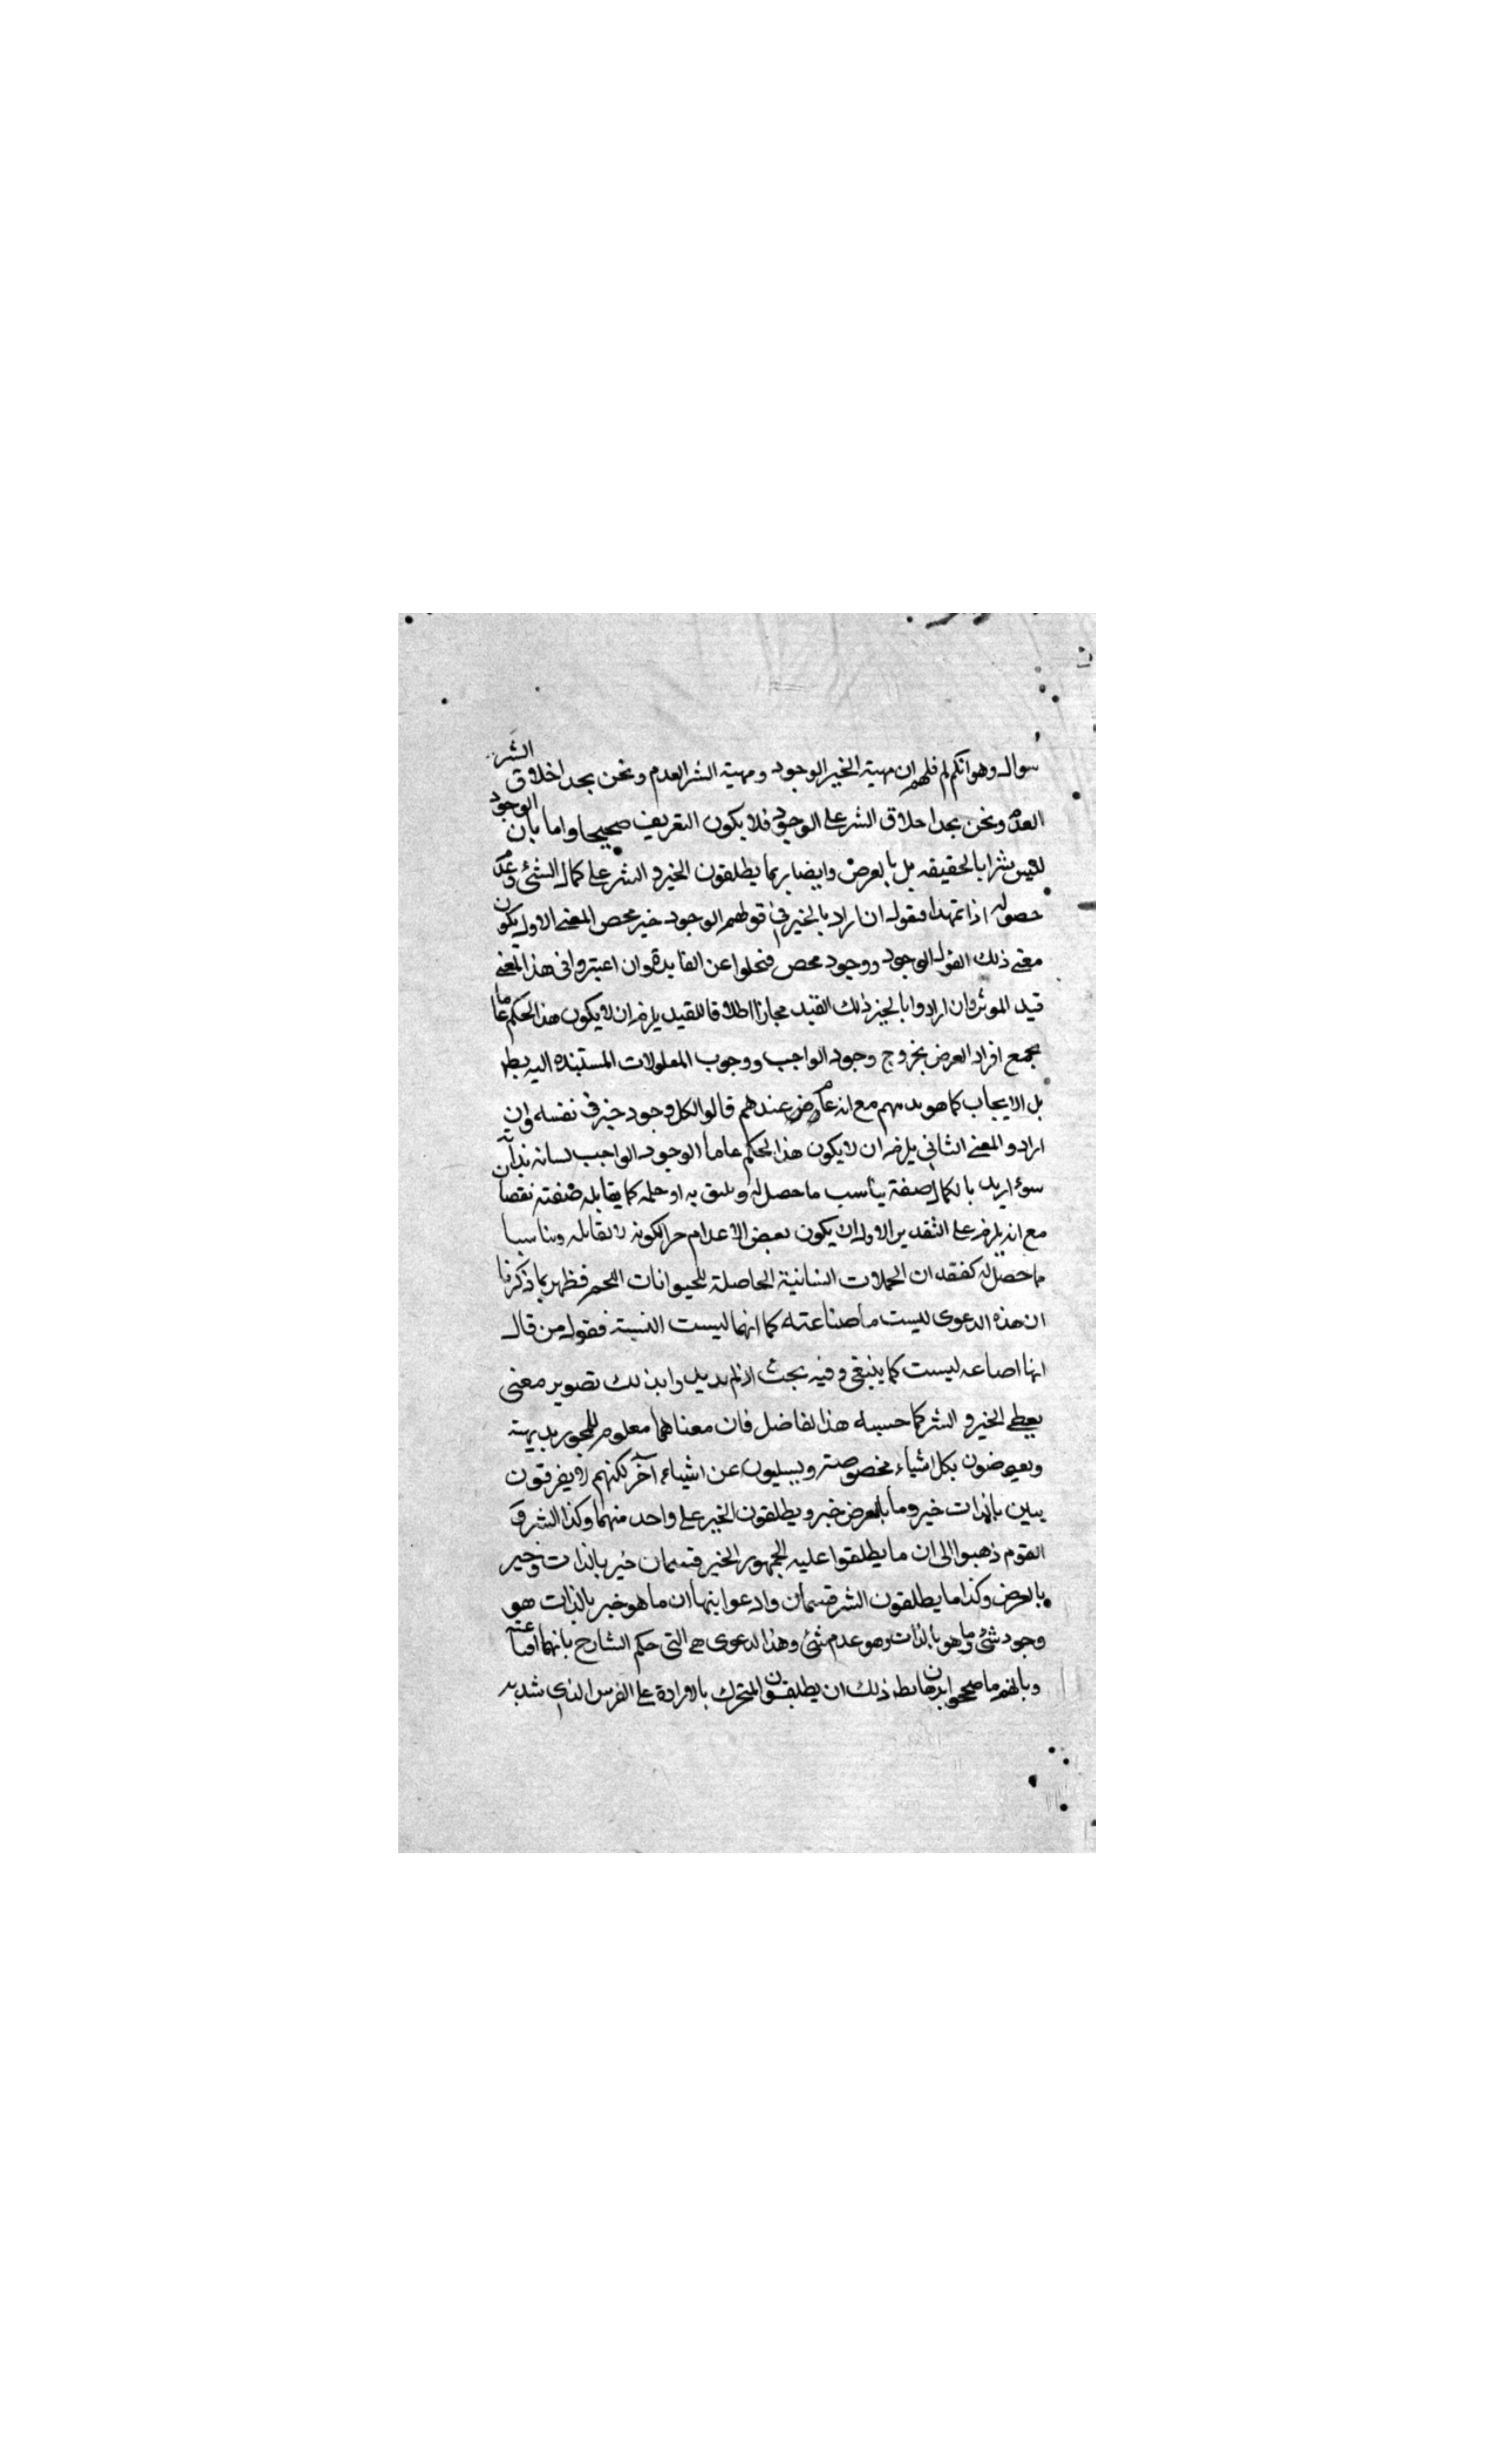 سوال وهو انكم لم قلتم ان مهية الخير الوجود ومهية الشر العدم ونحن نجد اخلاق الشر
العدم ونحن نجد اخلاق الشر على الوجود فلا يكون التعريف صحيحا واما بان الوجود
ليس شرا بالحقيقه بل بالعرض وايضا ربما يطلقون الخير و الشر على كمال الشئ وعدم
حصوله اذا تمهد هذا فقوله ان اراد بالخير في قولهم الوجود خير محص المعنے الاول يكون
معنے ذلك القول الوجود ووجود محص فنحلوا عن الفايدة وان اعتبروا في هذا المعنے
قيد الموثر وان ارادوا بالخير ذلك القيد مجازا اطلاقا للقيد يلزم ان لا يكون هذا الحكم عاما
بجمع افراد العرض بخروج وجود الواجب ووجوب المعلولات المستنده اليه بط
بل الايجاب كما هو مع انه عام عندهم قالوا الكل وجود خير في نفسه وان
ارادو المعنے الثاني يلزم ان لا يكون هذا الحكم عاما الوجود الواجب لسانه
سوء اريد بالكمال صفة يناسب ما حصل له ويليق به او كما يقابله صفته نقصا
مع انه يلزم على التقدير الاول ان يكون بعض الاعدام لكونه لا يقابله ويناسبا
ما حصل له كفقدان الحملات النسانية الحاصلة للحيوانات العجم فظهر بما ذكرنا
ان هذه الدعوى ليست ما صناعته كما انها ليست النسبته فقول من قال
انها ليست كما ينبغي وفيه بحث اذ لم يريد وا بذلك تصوير معنى
يعطے الخير و الشر كما حسبه هذا لفاضل فان معناهما معلوم للجهور بديهته
ويعوضون بكل اشياء مخصوصته ويسلبون عن اشياء آخر لكنهم لا يفرقون
بين بالذات خير وما بالعرض خير ويطلقون الخير على واحد منهما وكذا الشر و
القوم ذهبوا الى ان ما يطلقوا عليه الجمهور الخير قسمان خير بالذات وخير
بالعرض وكذا ما يطلقون الشر قسمان وادعوا ان ما هو خير بالذات هو
وجود شئ وما هو بالذات وهو عدم شئ وهذا الدعوى هے التى حكم الشارح بانهما اقناعته
وبانهم ما صححوا برهان ذلك ان يطلقون المتحرك بالارادة على الفرس الذى شديد